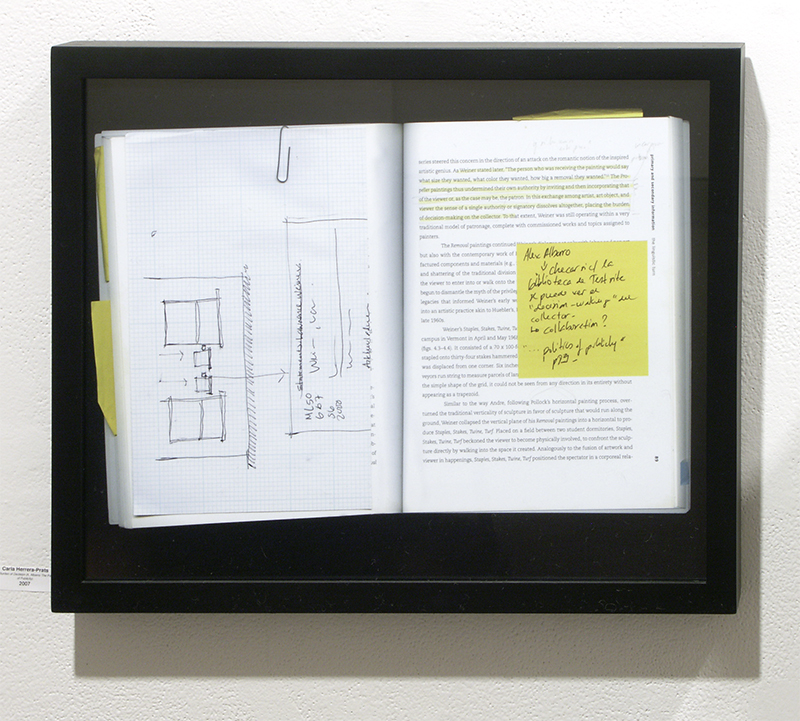 Carla Herrera-Prats
2007
Statements Lawrence Weiner
ML50
667
S6
2050
series steered this concern in the direction of an attack on the romantic notion of the inspired
artistic genius. As Weiner stated later, "The person who was receiving the painting would say
what size they wanted, what color they wanted, how big a removal they wanted." The Pro-
peller paintings thus undermined their own authority by inviting and then incorporating that
of the viewer or, as the case may be, the patron. In this exchange among artist, art object, and
viewer the sense of a single authority or signatory dissolves altogether, placing the burden
of decision-making on the collector. To that extent, Weiner was still operating within a very
traditional model of patronage, complete with commissioned works and topics assigned to
painters.
The Removal paintings continued
but also with the contemporary work of
factured components and materials (e.g.,
and shattering of the traditional division
the viewer to enter into or walk onto the
begun to dismantle the myth of the privileg
legacies that informed Weiner's early w
into an artistic practice akin to Huebler's,
late 1960s.
Weiner's Staples, Stakes, Twine, Turf
campus in Vermont in April and May 1968
(figs. 4.3–4.4). It consisted of a 70 x 100-f
stapled onto thirty-four stakes hammered
was displaced from one corner. Six inches
veyors run string to measure parcels of lan
the simple shape of the grid, it could not be seen from any direction in its entirety without
appearing as a trapezoid.
Similar to the way Andre, following Pollock's horizontal painting process, over-
turned the traditional verticality of sculpture in favor of sculpture that would run along the
ground, Weiner collapsed the vertical plane of his Removal paintings into a horizontal to pro-
duce Staples, Stakes, Twine, Turf. Placed on a field between two student dormitories, Staples,
Stakes, Twine, Turf beckoned the viewer to become physically involved, to confront the sculp-
ture directly by walking into the space it created. Analogously to the fusion of artwork and
viewer in happenings, Staples, Stakes, Twine, Turf positioned the spectator in a corporeal rela-
Alex Alberro
checar si la
biblioteca de Testsite
se puede ver el
"decision-making" del
collector.
collaboration?
"... politics of publicity"
primary and secondary information